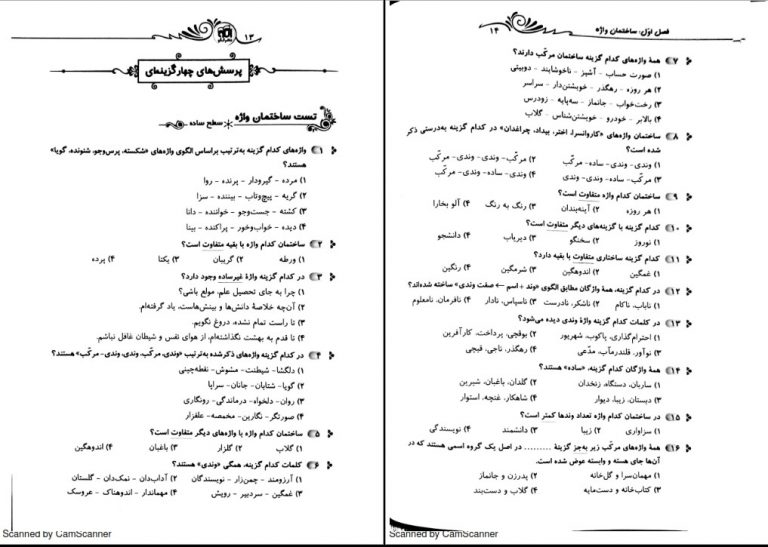 ۱۳
پرسش‌های چهارگزینه‌ای
تست ساختمان واژه سطح ساده
۱ واژه‌های کدام گزینه به‌ترتیب براساس الگوی واژه‌های «شکسته، پرس‌وجو، شنونده، گویا»
هستند؟
۱) مرده - گیرودار - پرنده - روا
۲) گریه - پیچ‌وتاب - بیننده - سزا
۳) کشته - جست‌وجو - خواننده - دانا
۴) دیده - خواب‌وخور - پراکنده - بینا
۲ ساختمان کدام واژه با بقیه متفاوت است؟
۱) ورطه ۲) گریبان ۳) یکتا ۴) پرده
۳ در کدام گزینه واژهٔ غیرساده وجود دارد؟
۱) چرا به جای تحصیل علم، مولع باشی؟
۲) آن‌چه خلاصهٔ دانش‌ها و بینش‌هاست، یاد گرفته‌ام.
۳) تا راست تمام نشده، دروغ نگویم.
۴) تا قدم به بهشت نگذاشته‌ام، از هوای نفس و شیطان غافل نباشم.
۴ در کدام گزینه واژه‌های ذکرشده به‌ترتیب «وندی، مرکّب، وندی، وندی- مرکّب» هستند؟
۱) دلگشا- شیطنت- مشوش- نقطه‌چینی
۲) گویا- شتابان- جانان- سراپا
۳) روان- دلخواه- درماندگی- رونگاری
۴) صورتگر- نگارین- مخمصه- علفزار
۵ ساختمان کدام واژه با واژه‌های دیگر متفاوت است؟
۱) گلاب ۲) گلزار ۳) باغبان ۴) اندوهگین
۶ کلمات کدام گزینه، همگی «وندی» هستند؟
۱) آرزومند - چمن‌زار - نویسندگان ۲) آداب‌دان - نمک‌دان - گلستان
۳) غمگین - سردبیر - رویش ۴) مهماندار - اندوهناک - عروسک
Scanned by CamScanner
فصل اوّل: ساختمان واژه
۱۴
۷ همهٔ واژه‌های کدام گزینه ساختمان مرکّب دارند؟
۱) صورت حساب - آشپز - ناخوشایند - دوبیتی
۲) هر روزه - رهگذر - خویشتن‌دار - سراسر
۳) رخت‌خواب - جانماز - سه‌پایه - زودرس
۴) بالابر - خودرو - خویشتن‌شناس - گلاب
۸ ساختمان واژه‌های «کاروانسرا، اختر، بیداد، چراغدان» در کدام گزینه به‌درستی ذکر
شده است؟
۱) وندی- وندی- ساده- مرکّب ۲) مرکّب- وندی- وندی- مرکّب
۳) مرکّب- ساده- وندی- وندی ۴) وندی- ساده- وندی- مرکّب
۹ ساختمان کدام واژه متفاوت است؟
۱) هر روزه ۲) آینه‌بندان ۳) رنگ به رنگ ۴) آلو بخارا
۱۰ ساختمان کدام گزینه با گزینه‌های دیگر متفاوت است؟
۱) نوروز ۲) سخنگو ۳) دیریاب ۴) دانشجو
۱۱ کدام گزینه ساختاری متفاوت با بقیه دارد؟
۱) غمگین ۲) اندوهگین ۳) شرمگین ۴) رنگین
۱۲ در کدام گزینه، همهٔ واژگان مطابق الگوی «وند + اسم ← صفت وندی» ساخته شده‌اند؟
۱) نایاب، ناکام ۲) ناشکر، نادرست ۳) ناسپاس، نادار ۴) نافرمان، نامعلوم
۱۳ در کلمات کدام گزینه واژهٔ وندی دیده می‌شود؟
۱) احترام‌گذاری، پاکوب، شهرپور ۲) بوقچی، پرداخت، کارآفرین
۳) نوآور، قلندرمآب، مدّعی ۴) رهگذر، ناجی، قیچی
۱۴ همهٔ واژگان کدام گزینه، «ساده» هستند؟
۱) ساربان، دستگاه، زنخدان ۲) گلدان، باغبان، شیرین
۳) دبستان، زیبا، دیوار ۴) شاهکار، غنچه، استوار
۱۵ در ساختمان کدام واژه تعداد وندها کمتر است؟
۱) سزاواری ۲) زیبا ۳) دانشمند ۴) نویسندگی
۱۶ همهٔ واژه‌های مرکّب زیر به‌جز گزینهٔ ......... در اصل یک گروه اسمی هستند که در
آن‌ها جای هسته و وابسته عوض شده است.
۱) مهمان‌سرا و گل‌خانه ۲) پدرزن و جانماز
۳) کتاب‌خانه و دست‌مایه ۴) گلاب و دست‌بند
Scanned by CamScanner